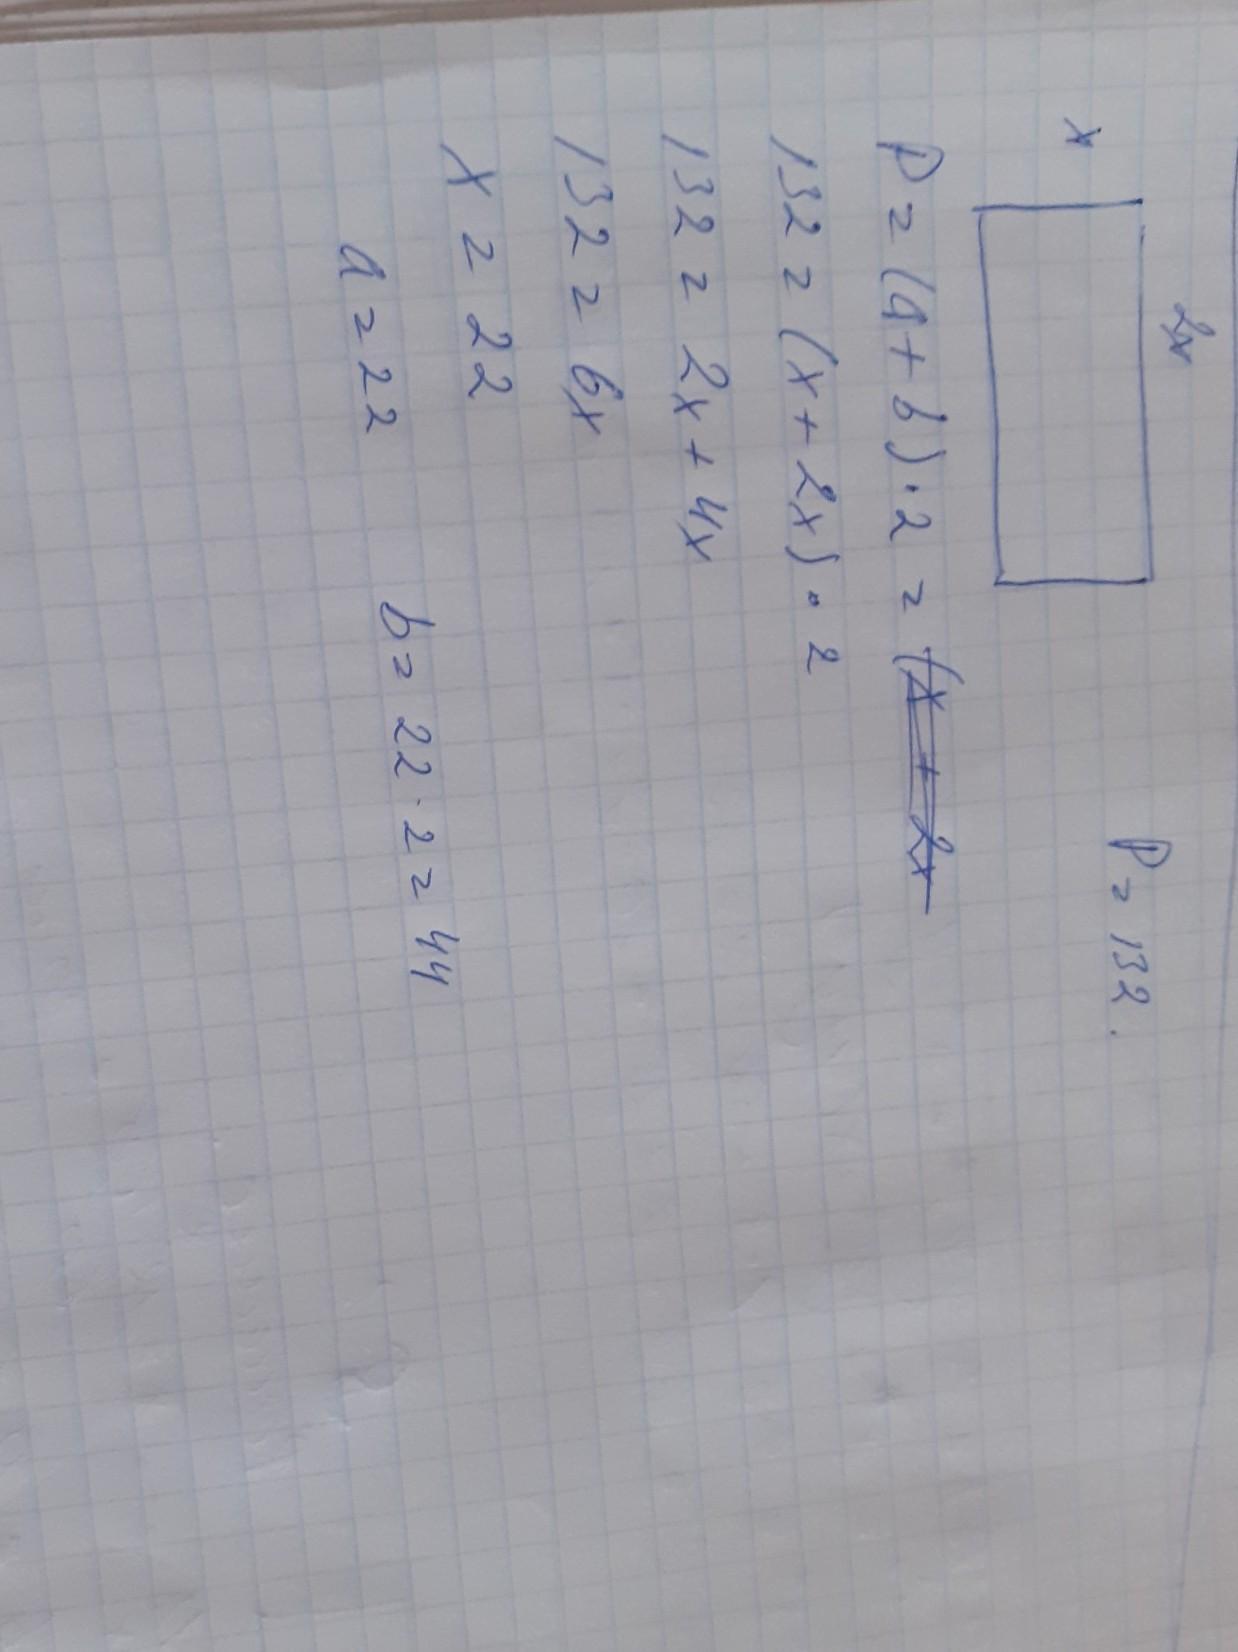 2x
x
P = 132.
P = (a + b) · 2 = (x + 2x
132 = (x + 2x) · 2
132 = 2x + 4x
132 = 6x
x = 22
a = 22 b = 22 · 2 = 44